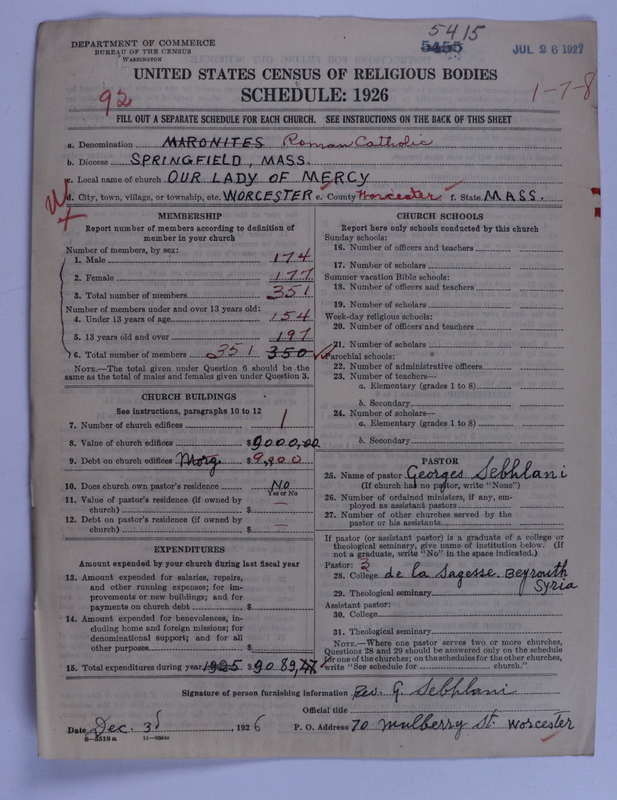 5415
5455
JUL 26 1927
DEPARTMENT OF COMMERCE
BUREAU OF THE CENSUS
WASHINGTON
UNITED STATES CENSUS OF RELIGIOUS BODIES
SCHEDULE: 1926
92
1-7-8
FILL OUT A SEPARATE SCHEDULE FOR EACH CHURCH. SEE INSTRUCTIONS ON THE BACK OF THIS SHEET
a. Denomination MARONITES Roman Catholic
b. Diocese SPRINGFIELD, MASS.
c. Local name of church OUR LADY OF MERCY
d. City, town, village, or township, etc. WORCESTER e. County Worcester f. State MASS.
MEMBERSHIP
Report number of members according to definition of
member in your church
Number of members, by sex:
1. Male 174
2. Female 177
3. Total number of members 351
Number of members under and over 13 years old:
4. Under 13 years of age 154
5. 13 years old and over 197
6. Total number of members 351 350
NOTE.—The total given under Question 6 should be the
same as the total of males and females given under Question 3.
CHURCH BUILDINGS
See instructions, paragraphs 10 to 12
7. Number of church edifices 1
8. Value of church edifices $ 9000,00
9. Debt on church edifices Morg. $ 9,900
10. Does church own pastor's residence No
Yes or No
11. Value of pastor's residence (if owned by
church) $ —
12. Debt on pastor's residence (if owned by
church) $ —
EXPENDITURES
Amount expended by your church during last fiscal year
13. Amount expended for salaries, repairs,
and other running expenses; for im-
provements or new buildings; and for
payments on church debt $
14. Amount expended for benevolences, in-
cluding home and foreign missions; for
denominational support; and for all
other purposes $
15. Total expenditures during year 1925 $ 9089,77
CHURCH SCHOOLS
Report here only schools conducted by this church
Sunday schools:
16. Number of officers and teachers
17. Number of scholars
Summer vacation Bible schools:
18. Number of officers and teachers
19. Number of scholars
Week-day religious schools:
20. Number of officers and teachers
21. Number of scholars
Parochial schools:
22. Number of administrative officers
23. Number of teachers—
a. Elementary (grades 1 to 8)
b. Secondary
24. Number of scholars—
a. Elementary (grades 1 to 8)
b. Secondary
PASTOR
25. Name of pastor Georges Sebhlani
(If church has no pastor, write "None")
26. Number of ordained ministers, if any, em-
ployed as assistant pastors
27. Number of other churches served by the
pastor or his assistants
If pastor (or assistant pastor) is a graduate of a college or
theological seminary, give name of institution below. (If
not a graduate, write "No" in the space indicated.)
Pastor: 3
28. College de la Sagesse. Beyrouth
Syria
29. Theological seminary
Assistant pastor:
30. College
31. Theological seminary
NOTE.—Where one pastor serves two or more churches,
Questions 28 and 29 should be answered only on the schedule
for one of the churches; on the schedules for the other churches,
write "See schedule for church."
Signature of person furnishing information Rev. G. Sebhlani
Official title
Date Dec. 31, 1926 P. O. Address 70 Mulberry St. Worcester